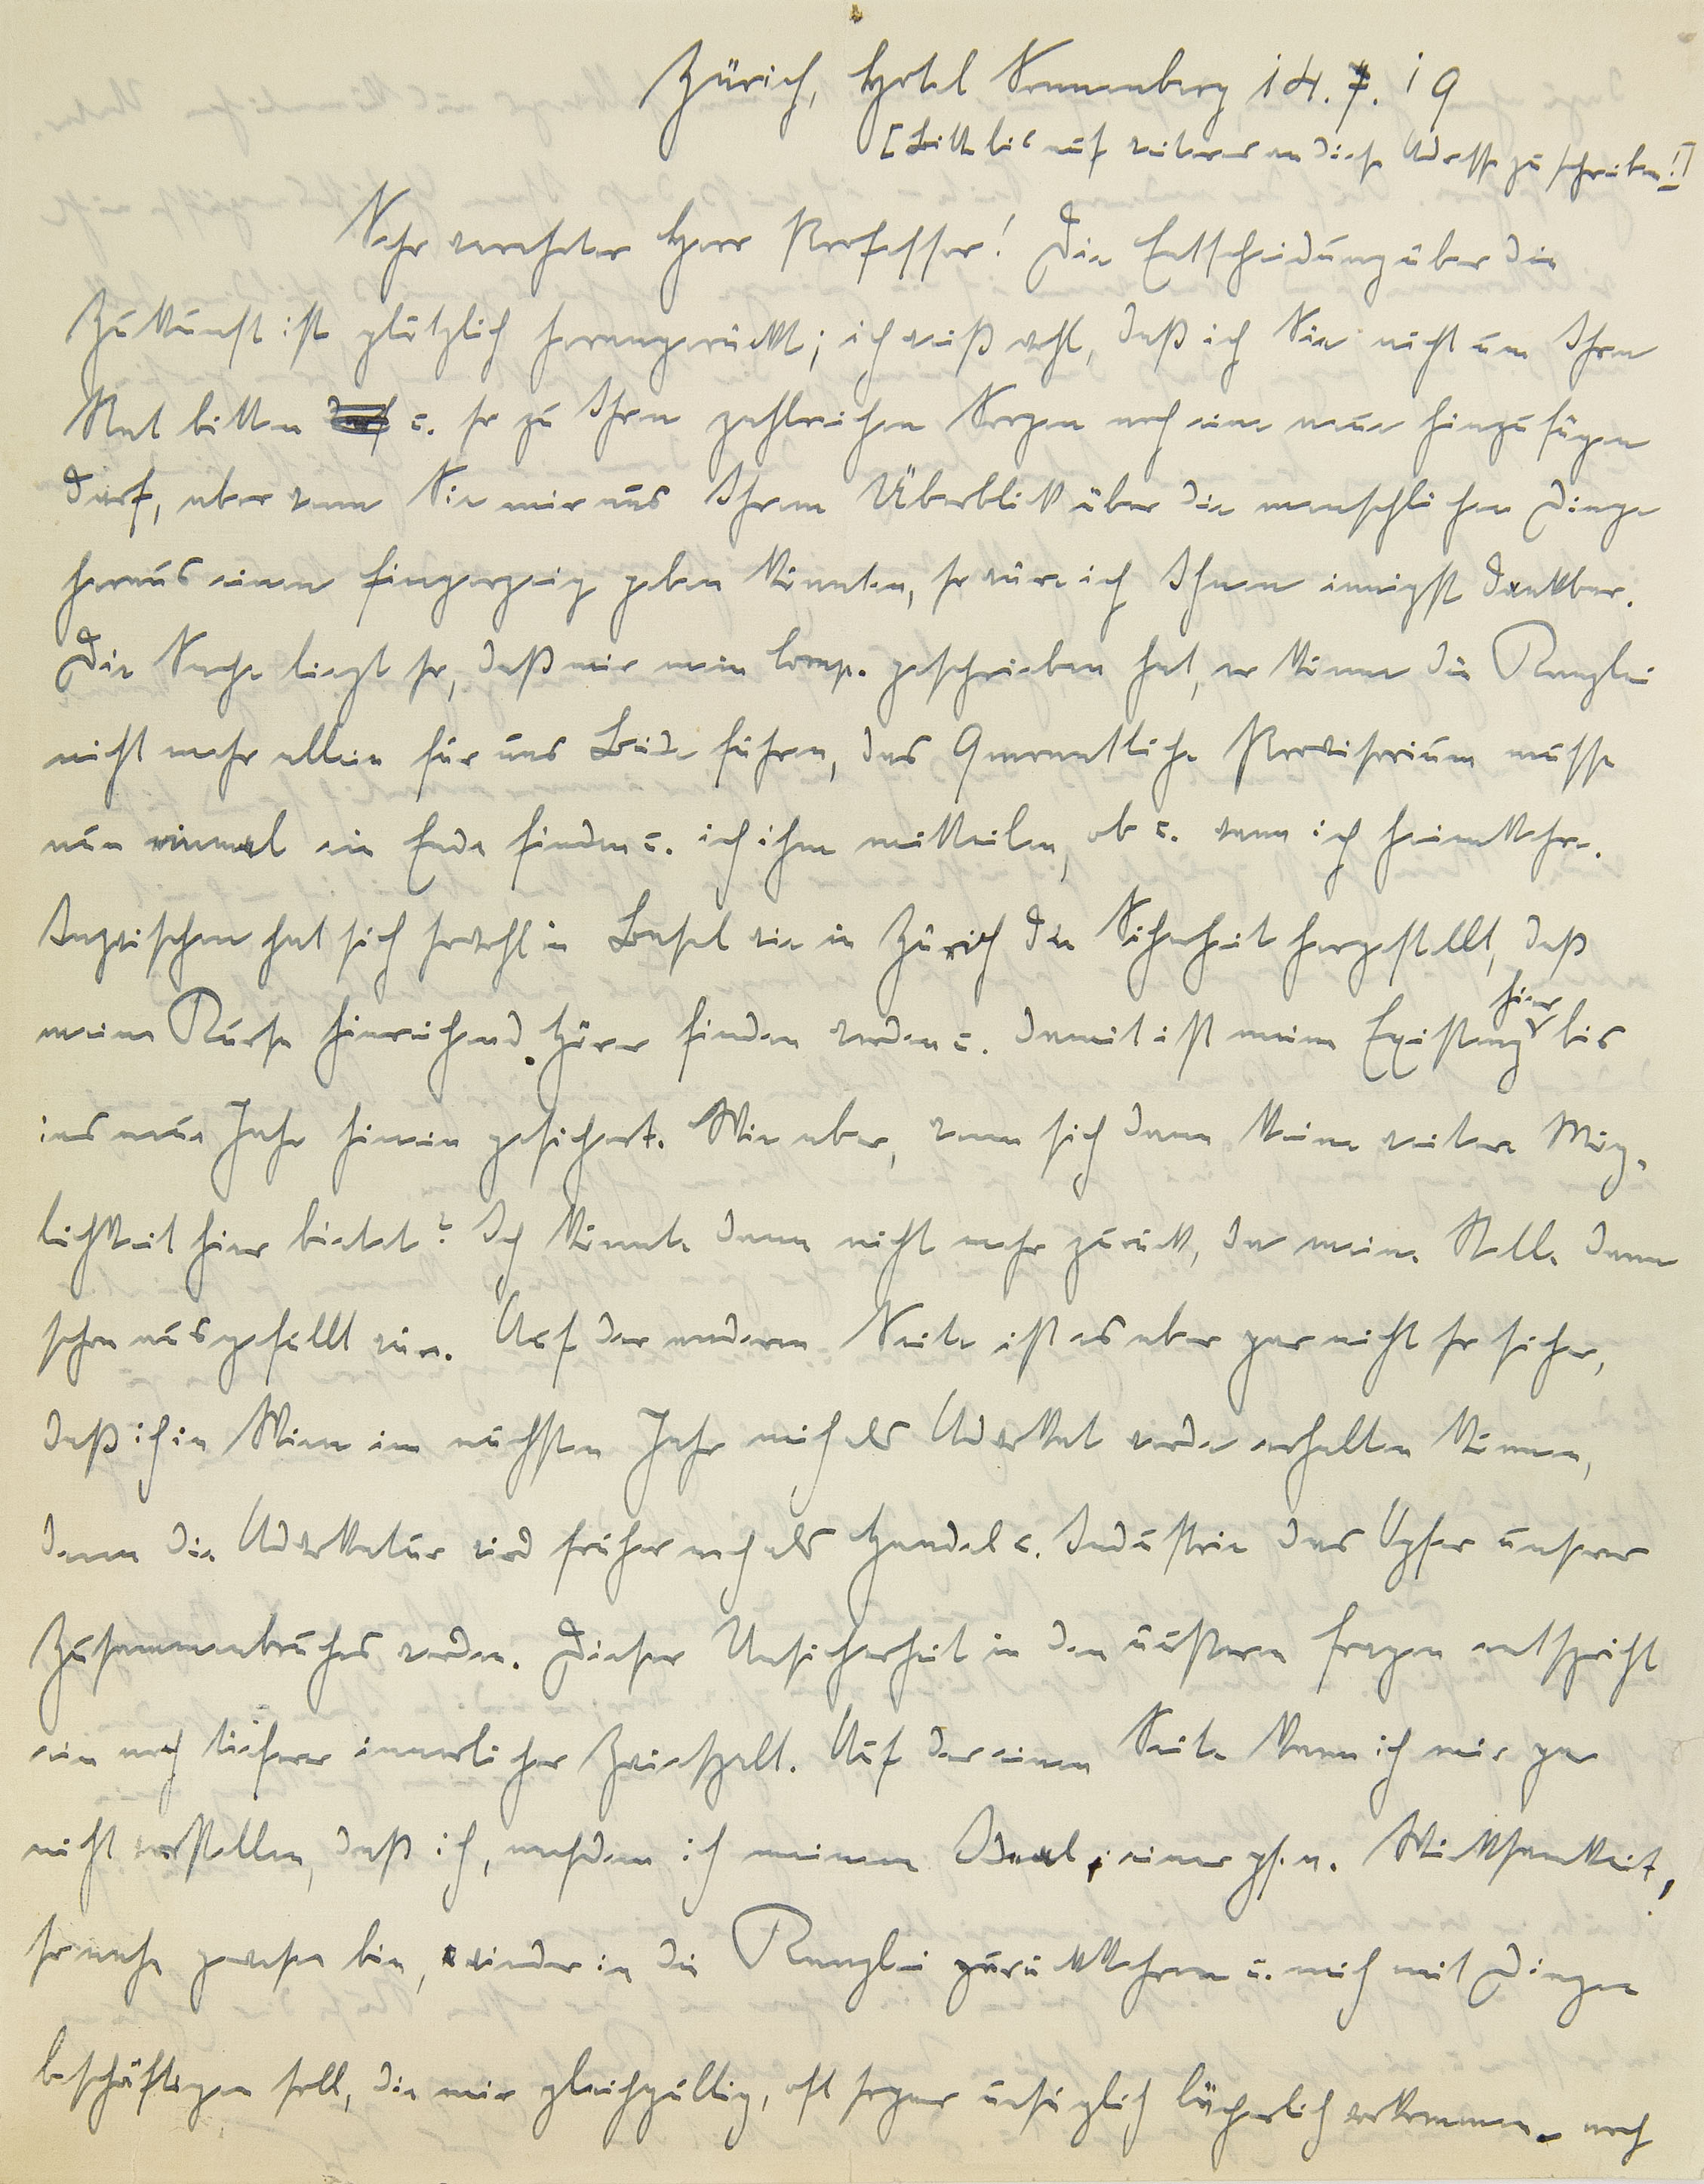 Zürich, Hotel Sonnenberg 14. 7. 19
[Bitte bis auf weiteres an diese Adresse zu schreiben!]
Sehr verehrter Herr Professor! Die Entscheidung über die
Zukunft ist plötzlich herangerückt; ich weiß wohl, daß ich Sie nicht um Ihren
Rat bitten u. so zu Ihren zahlreichen Sorgen noch eine neue hinzufügen
darf, aber wenn Sie mir aus Ihrem Überblick über die menschlichen Dinge
heraus einen Fingerzeig geben könnten, so wäre ich Ihnen innigst dankbar.
Die Sache liegt so, daß mir mein Comp. geschrieben hat, er könne die Kanzlei
nicht mehr allein für uns Beide führen, das 9monatliche Provisorium müsse
nun einmal ein Ende finden u. ich ihm mitteilen, ob u. wann ich heimkehre.
Inzwischen hat sich sowohl in Basel wie in Zürich die Sicherheit hergestellt, daß
meine Kurse hinreichend Hörer finden werden u. damit ist meine Existenz hier bis
ins neue Jahr hinein gesichert. Wie aber, wenn sich dann keine weitere Mög-
lichkeit hier bietet? Ich könnte dann nicht mehr zurück, da meine Stelle dann
schon ausgefüllt wäre. Auf der anderen Seite ist es aber gar nicht so sicher,
daß ich in Wien im nächsten Jahr mich als Advokat werde erhalten können,
denn die Advokatur wird früher noch als Handel u. Industrie das Opfer unseres
Zusammenbruches werden. Dieser Unsicherheit in den äußeren Fragen entspricht
ein noch tieferer innerlicher Zwiespalt. Auf der einen Seite kann ich mir gar
nicht vorstellen, daß ich, nachdem ich meinem Ideal, einer ps.a. Wirksamkeit,
so nahe gewesen bin, wieder in die Kanzlei zurückkehren u. mich mit Dingen
beschäftigen soll, die mir gleichgültig, oft sogar unsäglich lächerlich vorkommen. noch